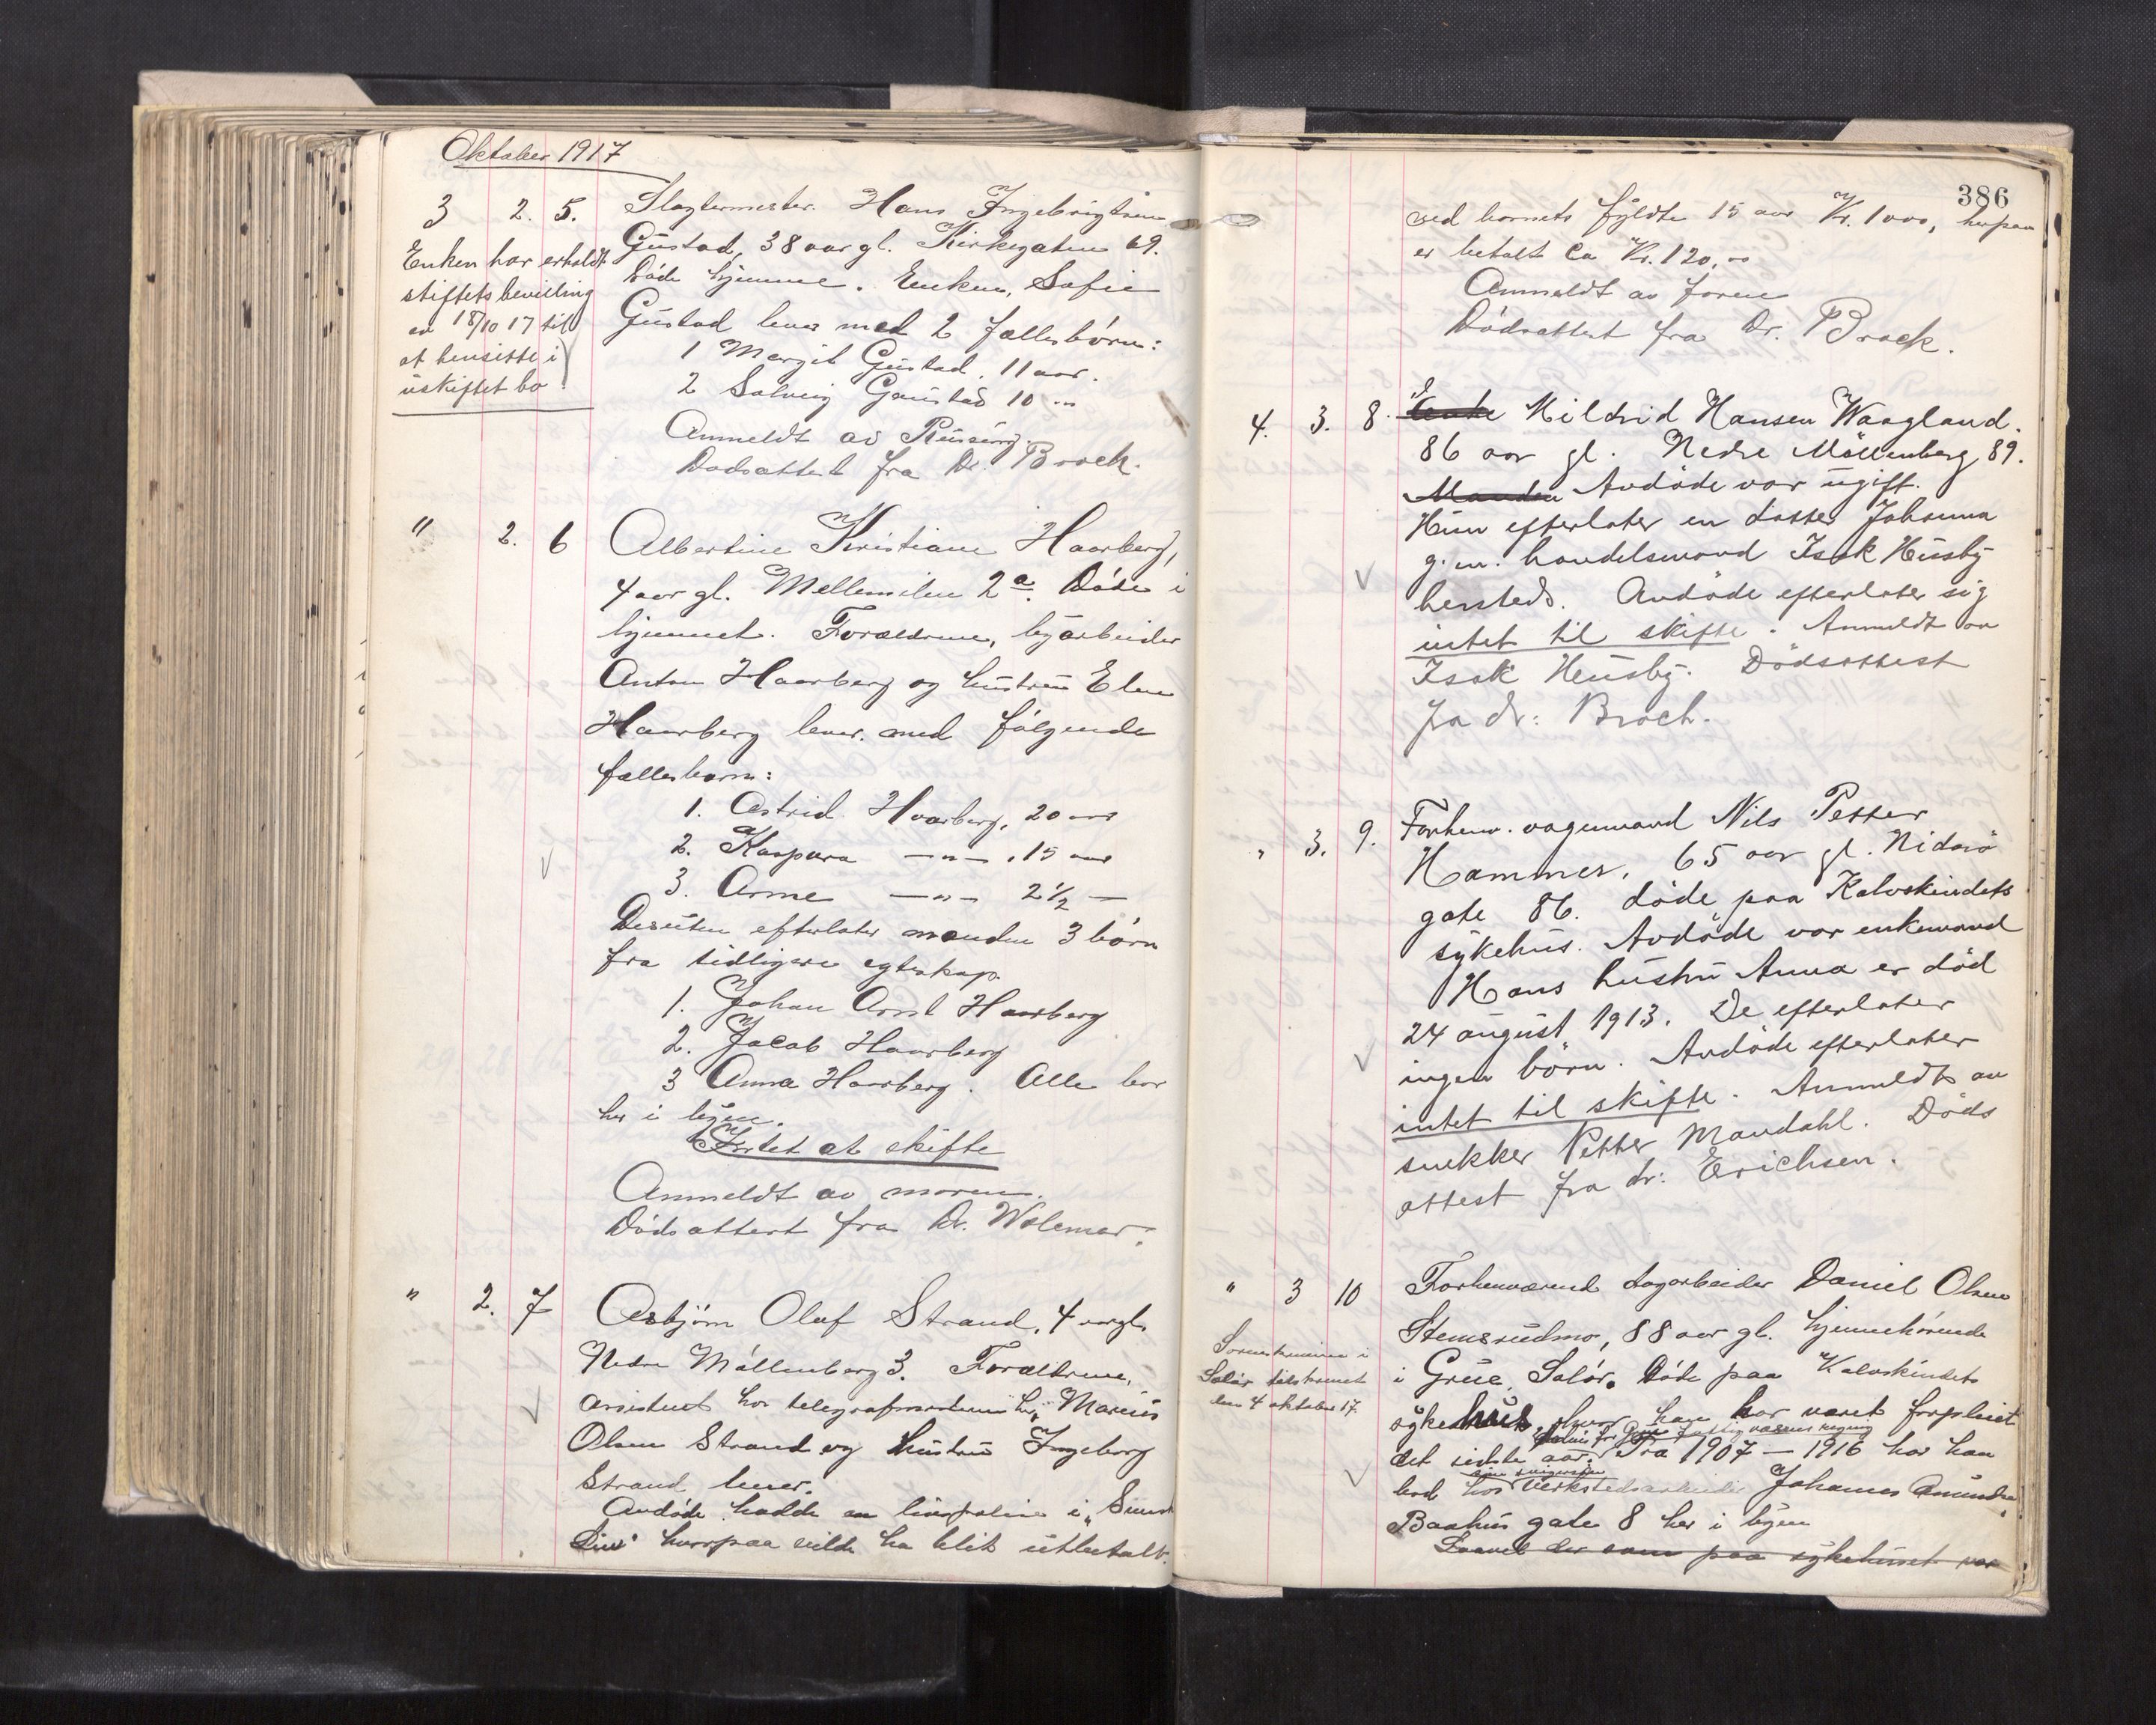 Oktober 1917
3 2. 5. Slagtermester Hans Ingebrigtsen
Gustad, 38 aar gl. Kirkegaten 69.
Døde hjemme. Enken, Sofie
Gustad lever med 2 fællesbørn:
1 Margit Gustad. 11 aar.
2 Solveig Gaustad 10 "
Anmeldt av
Dødsattest fra Dr. Brock.
Enken har erholdt
stiftets bevilling
av 18/10 17 til
at hensitte i
uskiftet bo.
" 2. 6 Albertine Kristiane Haarberg,
4 aar gl. Mellemilen 2a. Døde i
hjemmet. Forældrene, byarbeider
Anton Haarberg og hustru Elen
Haarberg lever. med følgende
fællesbarn:
1. Astrid Haarberg, 20 aar
2. Kaspara —"— . 15 aar
3. Arne —"— 2½ —
Desuten efterlater manden 3 børn
fra tidligere egteskap.
1. Johan Arnt Haarberg
2. Jacob Haarberg
3 Anna Haarberg. Alle bor
her i byen.
Intet at skifte
Anmeldt av moren.
Dødsattest fra Dr.
" 2. 7 Asbjørn Olaf Strand, 4 aar gl.
Nedre Møllenberg 3. Forældrene,
assistent hos telegrafmesteren her, Marius
Olsen Strand og hustru Ingeborg
Strand, lever.
Avdøde hadde en livspolice i "
Liv" hvorpaa vilde ha blit utbetalt
386
ved barnets fyldte 15 aar Kr. 1000, hvpaa
er betalt ca Kr. 120.00
Anmeldt av faren
Dødsattest fra Dr. Brock.
4. 3. 8. Enke Mildrid Hansen Waagland.
86 aar gl. Nedre Möllenberg 89.
Manden Avdöde var ugift.
Hun efterlater en datter Johanna
g. m. handelsmand Isak Husby
hersteds. Avdöde efterlater sig
intet til skifte. Anmeldt av
Isak Husby. Dödsattest
fra dr: Broch.
" 3. 9. Forhenv. vognmand Nils Petter
Hammer, 65 aar gl. Nidarö
gate 86. döde paa Kalvskindets
sykehus. Avdöde var enkemand
Hans hustru Anna er död
24 august 1913. De efterlater
ingen börn. Avdöde efterlater
intet til skifte. Anmeldt av
snekker Petter Mandahl. Döds
attest fra dr: Erichsen.
" 3 10 Forhenværend dagarbeider Daniel Olsen
Stemsrudmo, 88 aar gl. hjemmehørende
i Grue, Solør. Døde paa Kalvskindets
sykehus, hvor han har været forpleiet
for Grue fattigvæsens regning
det sidste aar. Fra 1907 – 1916 har han
bod hos verkstedsarbeider Johannes Amundsen
Baahus gate 8 her i byen
Saavel der som paa sykehuset var
Sorenskriveren i
Solør tilskrevet
den 4 oktober 17.